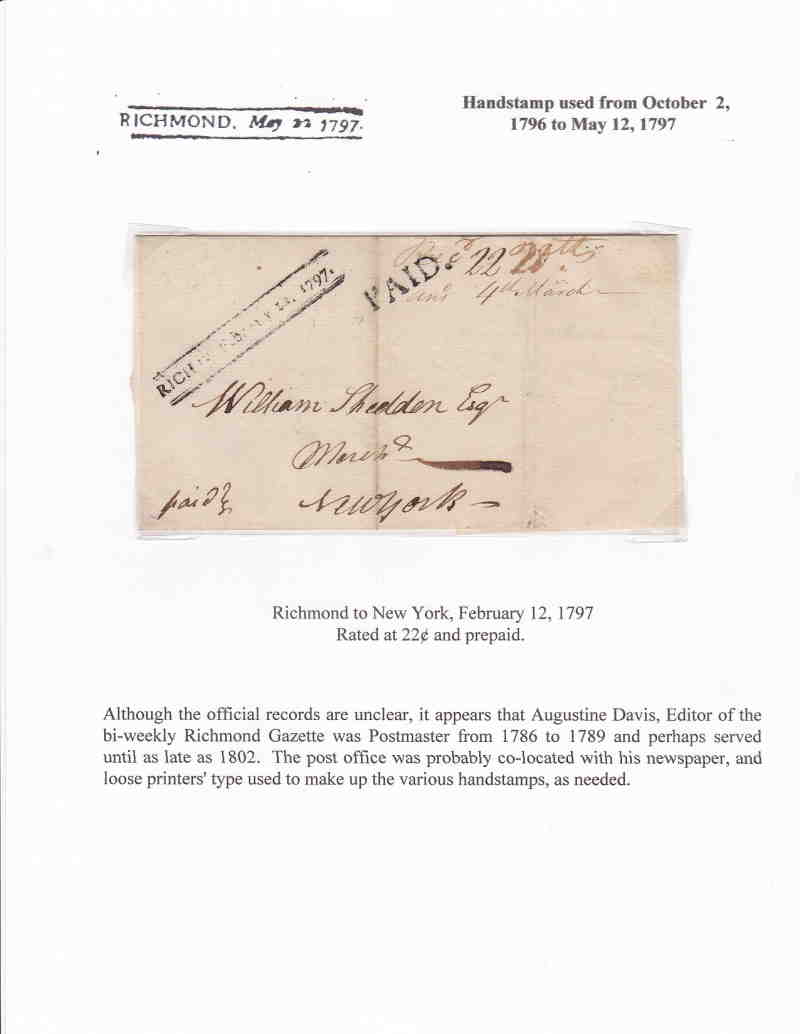 RICHMOND. May 22 1797.
Handstamp used from October 2,
1796 to May 12, 1797
PAID.
22
4th March
1797.
William Shedden Esqr
Merch^t
New York
paid
Richmond to New York, February 12, 1797
Rated at 22¢ and prepaid.
Although the official records are unclear, it appears that Augustine Davis, Editor of the
bi-weekly Richmond Gazette was Postmaster from 1786 to 1789 and perhaps served
until as late as 1802. The post office was probably co-located with his newspaper, and
loose printers' type used to make up the various handstamps, as needed.